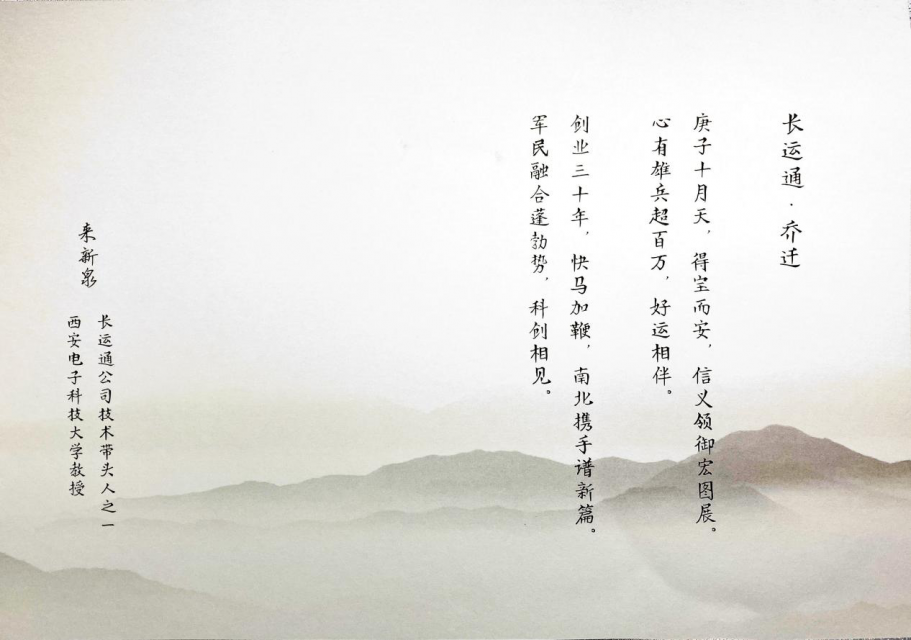 长运通·乔迁
庚子十月天，得宝而安，信义领御宏图展。
心有雄兵超百万，好运相伴。
创业三十年，快马加鞭，南北携手谱新篇。
军民融合蓬勃势，科创相见。
来新泉
长运通公司技术带头人之一
西安电子科技大学教授